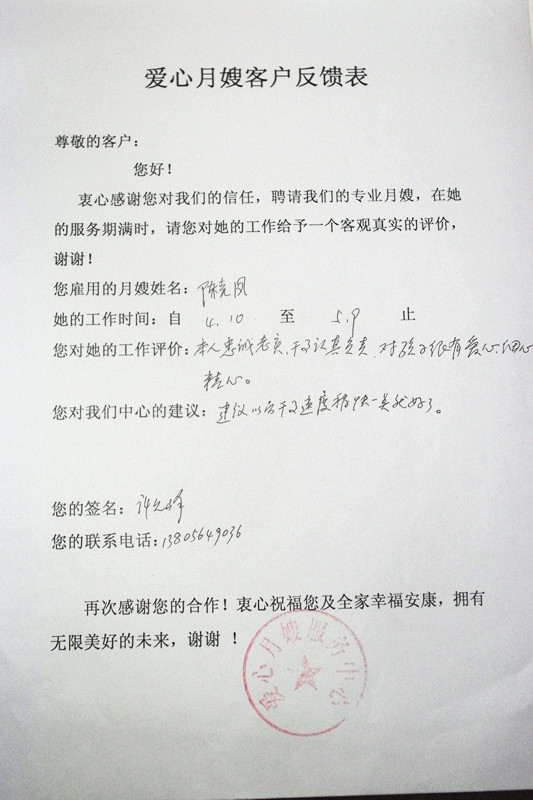 爱心月嫂客户反馈表
尊敬的客户：
您好！
衷心感谢您对我们的信任，聘请我们的专业月嫂，在她
的服务期满时，请您对她的工作给予一个客观真实的评价，
谢谢！
您雇用的月嫂姓名：陈克凤
她的工作时间：自 4.10 至 5.9 止
您对她的工作评价：本人忠诚老实、干活认真负责、对孩子很有爱心、细心
精心。
您对我们中心的建议：建议以后干活速度稍快一点就好了。
您的签名：许
您的联系电话：13805649036
再次感谢您的合作！衷心祝福您及全家幸福安康，拥有
无限美好的未来，谢谢 ！
爱心月嫂服务中心